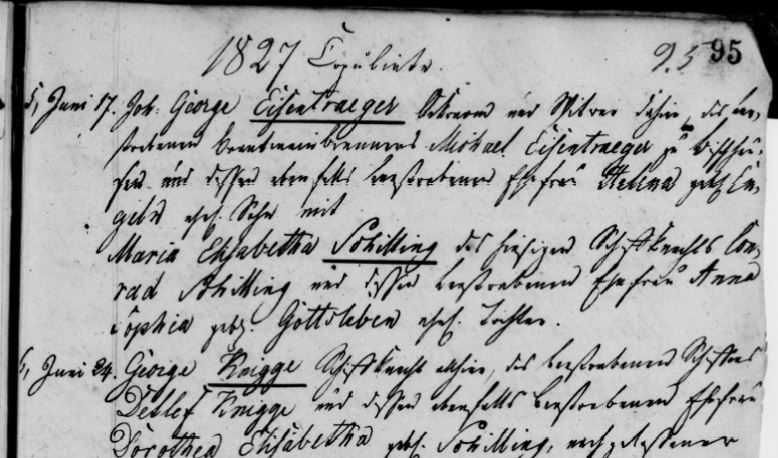 1827 Copulirte. 95 95
5, Juni 17. Joh. George Eisentraeger und Witwer dahier, des ver-
storbenen Branteweinbrenners Michael Eisentraeger zu
und dessen ebenfalls verstorbenen Ehefrau Helena geb. En-
geln ehel. Sohn mit
Maria Elisabetha Schilling des hiesigen Schiffknechts Con-
rad Schilling und dessen verstorbenen Ehefrau Anna
Sophia geb. Gottsleben ehel. Tochter.
6, Juni 24. George Knigge Schiffknecht allhier, des verstorbenen Schiffers
Detlef Knigge und dessen ebenfalls verstorbenen Ehefrau
Dorothea Elisabetha geb. Schilling, nachgelassener